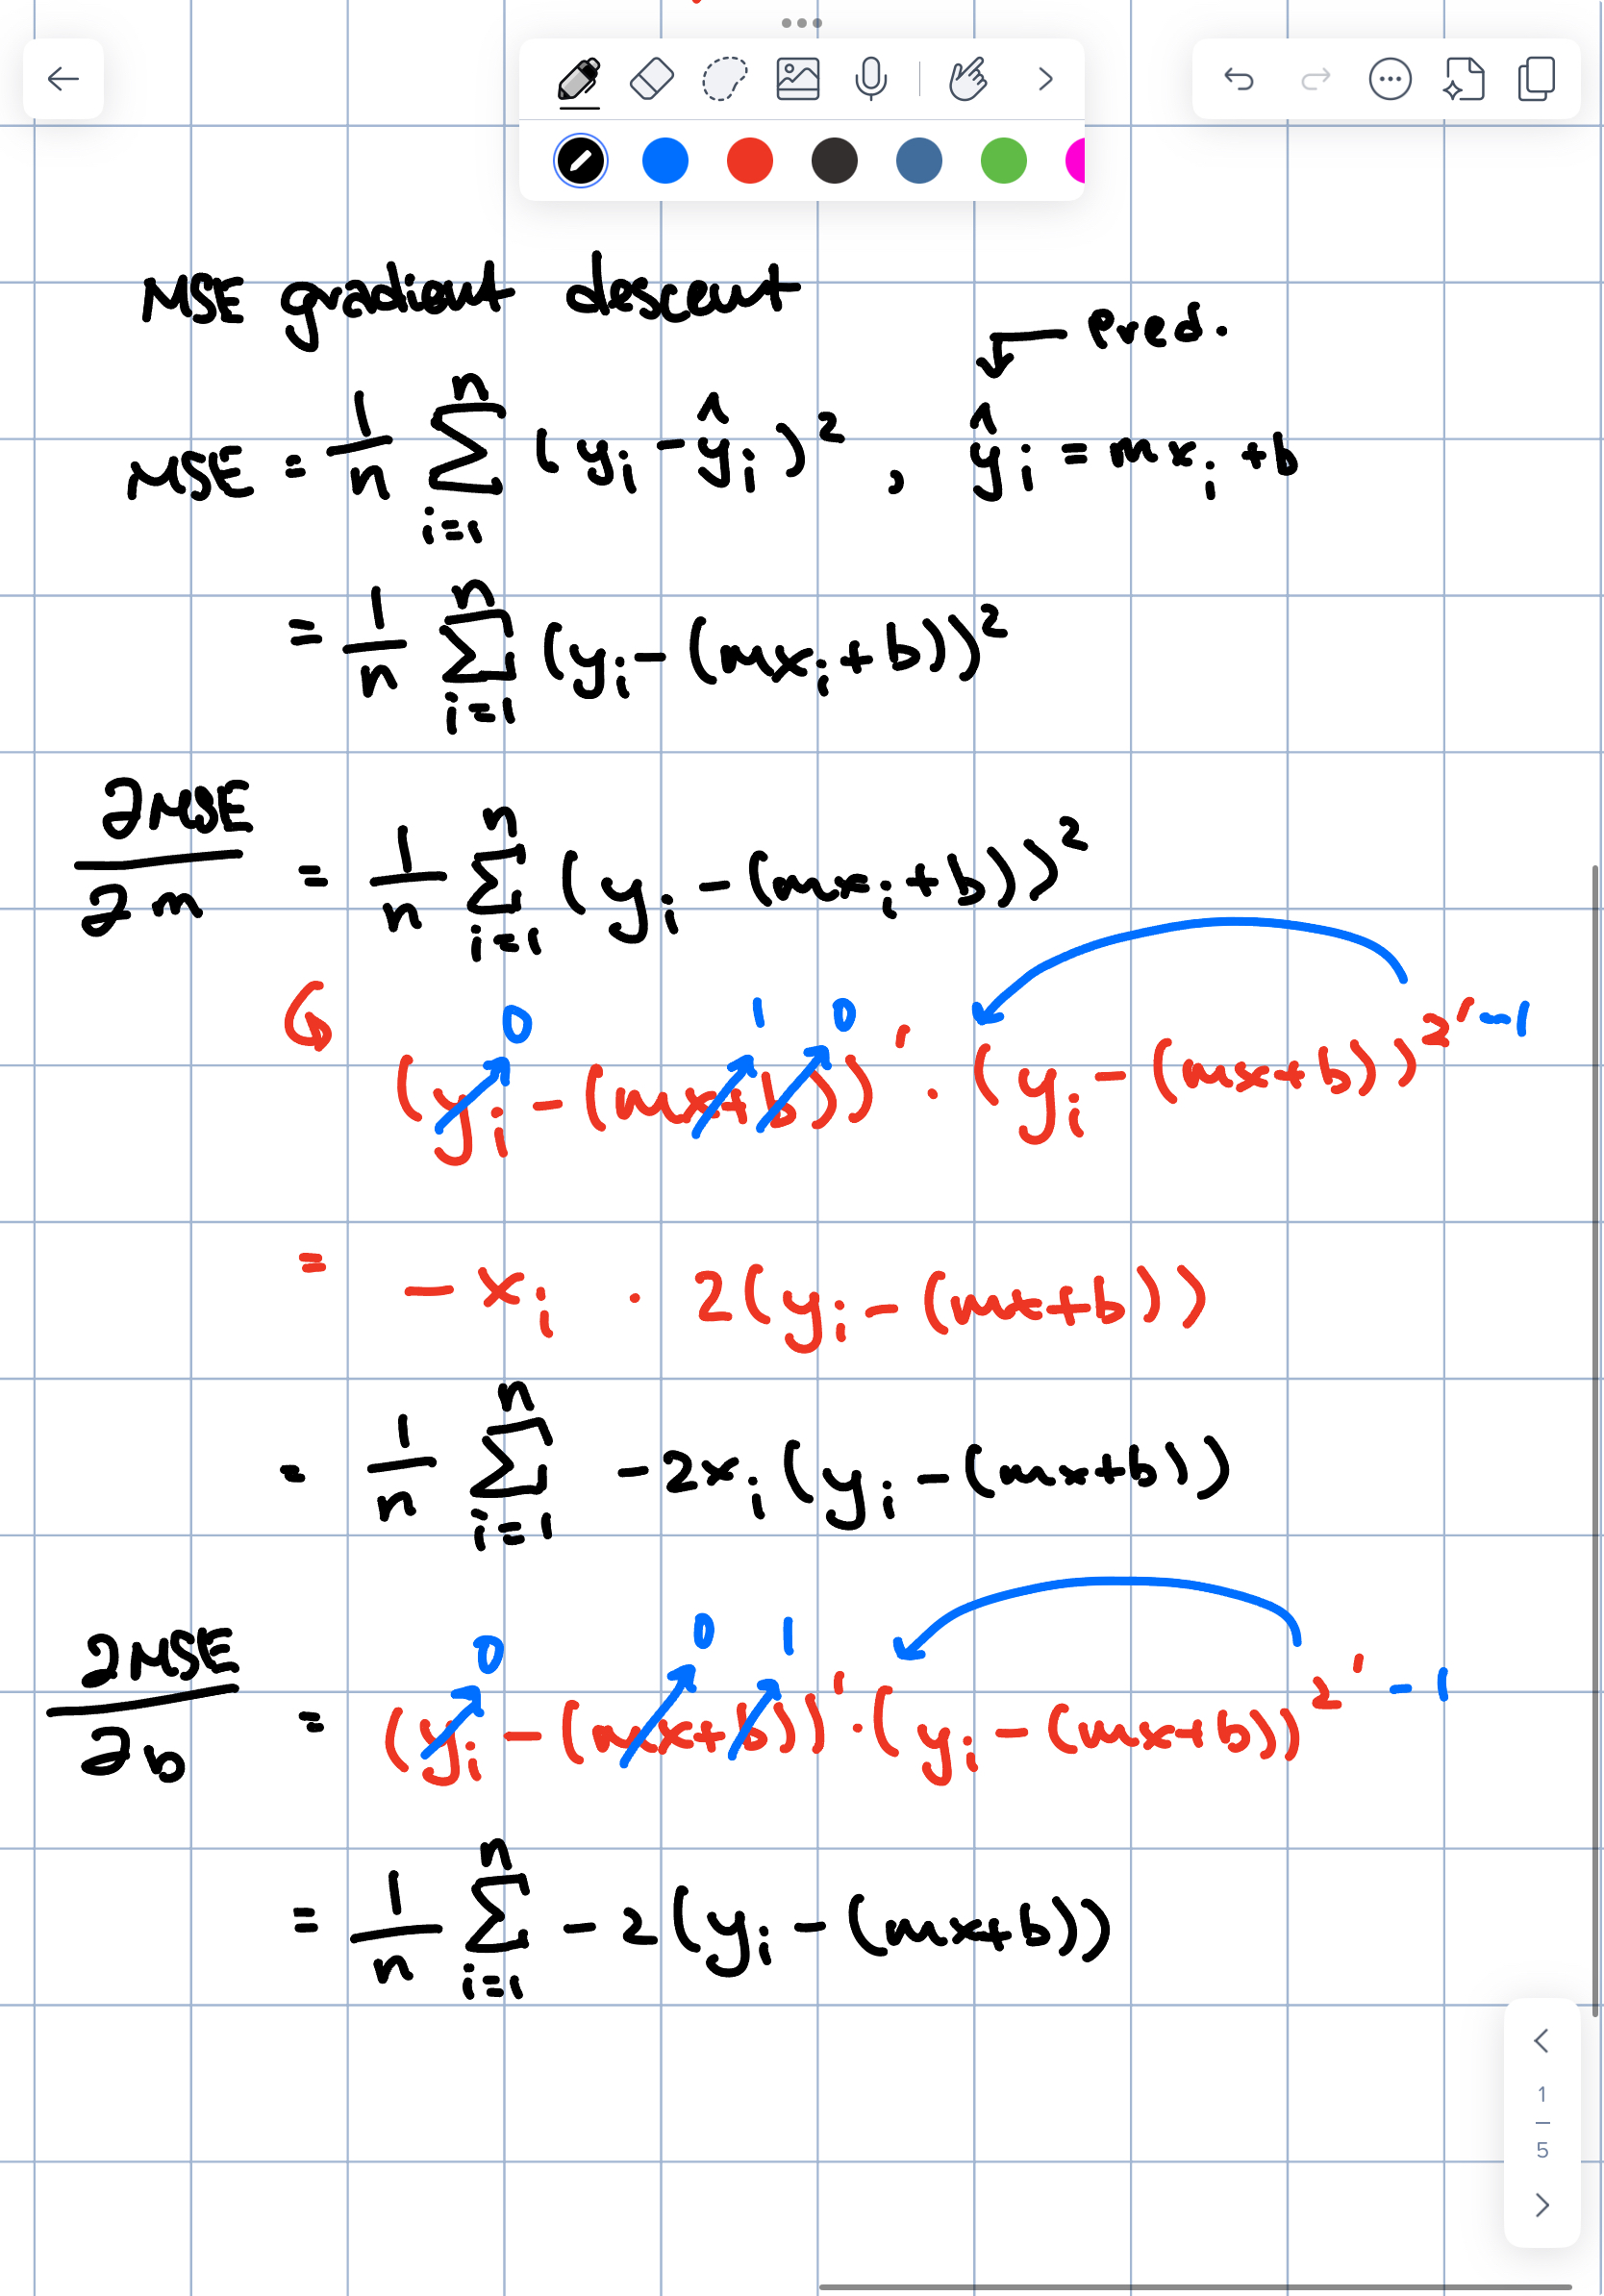 MSE gradient descent
← Pred.
MSE = 1/n Σ_{i=1}^{n} (y_i - ŷ_i)², ŷ_i = mx_i + b
= 1/n Σ_{i=1}^{n} (y_i - (mx_i + b))²
∂MSE/∂m = 1/n Σ_{i=1}^{n} (y_i - (mx_i + b))²
0 1 0
(y_i - (mx + b))' · (y_i - (mx + b))^{2' - 1}
= -x_i · 2(y_i - (mx + b))
= 1/n Σ_{i=1}^{n} -2x_i (y_i - (mx + b))
0 0 1
∂MSE/∂b = (y_i - (mx + b))' · (y_i - (mx + b))^{2' - 1}
= 1/n Σ_{i=1}^{n} -2(y_i - (mx + b))
1
5